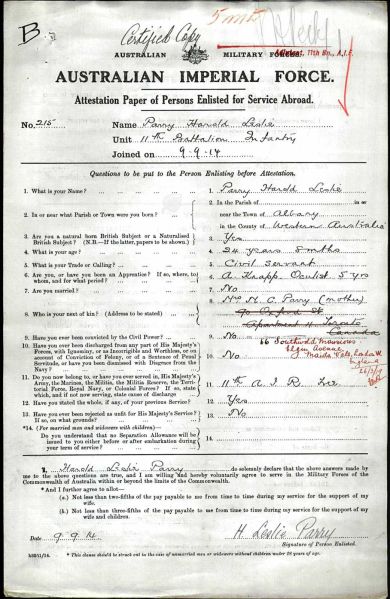 B
Certified Copy
5 mts
Adjutant, 11th Bn., A.I.F.
AUSTRALIAN MILITARY FORCES.
AUSTRALIAN IMPERIAL FORCE.
Attestation Paper of Persons Enlisted for Service Abroad.
No. 215 Name Parry Harold Leslie
Unit 11th Battalion Infantry
Joined on 9.9.14
Questions to be put to the Person Enlisting before Attestation.
1. What is your Name? 1. Parry Harold Leslie
2. In or near what Parish or Town were you born? 2. In the Parish of in or
near the Town of Albany
in the County of Western Australia
3. Are you a natural born British Subject or a Naturalised
British Subject? (N.B.—If the latter, papers to be shown.) 3. Yes
4. What is your age? 4. 24 years 8 mths
5. What is your Trade or Calling? 5. Civil Servant
6. Are you, or have you been an Apprentice? If so, where, to
whom, and for what period? 6. A Knapp. Oculist 5 yrs
7. Are you married? 7. No
8. Who is your next of kin? (Address to be stated) 8. Mrs M. C. Parry (mother)
90 Oxford St
Apartment 4 Toronto
Canada
66 Southwold Mansions
Elgin Avenue
Maida Vale, London W.
England
9. Have you ever been convicted by the Civil Power? 9. No
10. Have you ever been discharged from any part of His Majesty's
Forces, with Ignominy, or as Incorrigible and Worthless, or on
account of Conviction of Felony, or of a Sentence of Penal
Servitude, or have you been dismissed with Disgrace from the
Navy? 10. No
11. Do you now belong to, or have you ever served in, His Majesty's
Army, the Marines, the Militia, the Militia Reserve, the Territorial
Force, Royal Navy, or Colonial Forces? If so, state
which, and if not now serving, state cause of discharge 11. 11th A I R.
12. Have you stated the whole, if any, of your previous Service? 12. Yes
13. Have you ever been rejected as unfit for His Majesty's Service?
If so, on what grounds? 13. No
*14. (For married men and widowers with children)—
Do you understand that no Separation Allowance will be
issued to you either before or after embarkation during
your term of service? 14.
I, Harold Leslie Parry do solemnly declare that the above answers made
by me to the above questions are true, and I am willing and hereby voluntarily agree to serve in the Military Forces of the
Commonwealth of Australia within or beyond the limits of the Commonwealth.
* And I further agree to allot—
(a.) Not less than two-fifths of the pay payable to me from time to time during my service for the support of
wife.
(b.) Not less than three-fifths of the pay payable to me from time to time during my service for the support of my
wife and children.
Date 9.9.14
H Leslie Parry
Signature of Person Enlisted.
* This clause should be struck out in the case of unmarried men or widowers without children under 18 years of age.